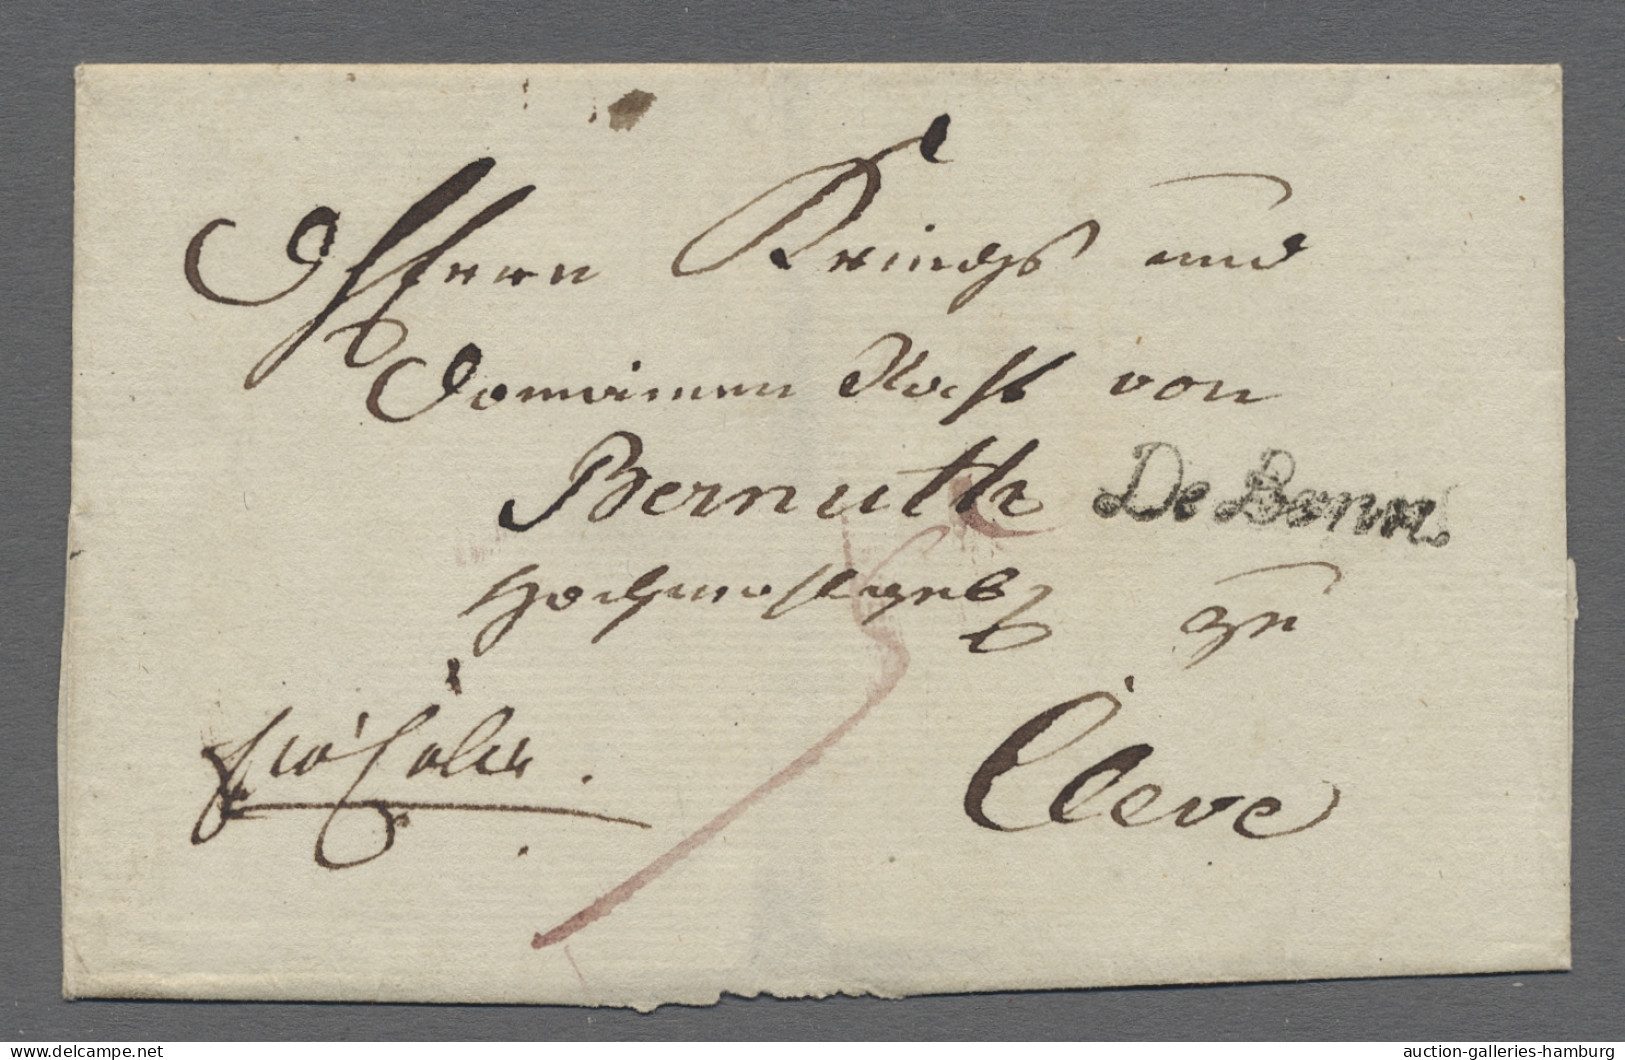 Herrn Kriegs und
Domainen Rath von
Bernuth
De Bonn
Hochwohlgeb
zu
Cleve
auction-galleries-hamburg
delcampe.net